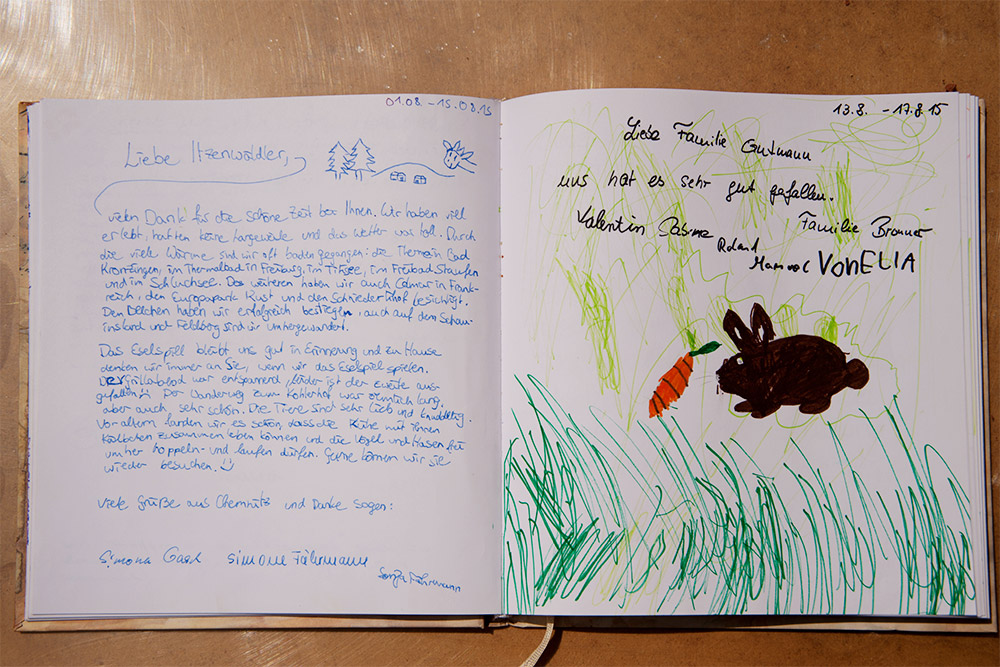 01.08. - 15.08.15
Liebe Itzenwäldler,
vielen Dank für die schöne Zeit bei Ihnen. Wir haben viel
erlebt, hatten keine Langeweile und das Wetter war toll. Durch
die viele Wärme sind wir oft baden gegangen: die Therme in Bad
Krontzingen, im Thermalbad in Freiburg, im Titisee, im Freibad Staufen
und im Schluchsee. Des weiteren haben wir auch Colmar in Frank-
reich, den Europapark Rust und den Schniederlihof besichtigt.
Den Belchen haben wir erfolgreich bestiegen, auch auf dem Schau-
insland und Feldberg sind wir umhergewandert.
Das Eselspill bleibt uns gut in Erinnerung und zu Hause
denken wir immer an Sie, wenn wir das Eselspiel spielen.
Der Grillabend war entspannend, leider ist der zweite aus-
gefallen. Der Wanderweg zum Kohlerhof war ziemlich lang,
aber auch sehr schön. Die Tiere sind sehr lieb und knuddelig.
Vor allem fanden wir es schön, dass die Kühe mit ihren
Kälbchen zusammen leben können und die Vögel und Hasen frei
umher hoppeln- und laufen dürfen. Gerne kommen wir sie
wieder besuchen.
Viele Grüße aus Chemnitz und Danke sagen:
Simona Simone Fährmann
Fährmann
13.8. - 17.8.15
Liebe Familie Gutmann
uns hat es sehr gut gefallen.
Valentin Familie Brunner
Roland
VON ELIA